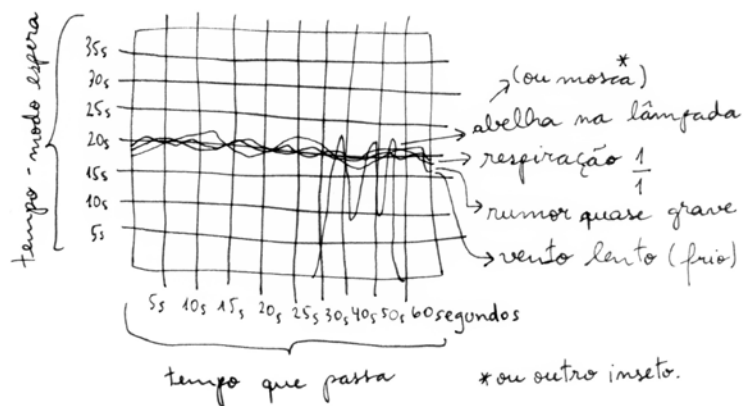 tempo - modo espera
35s
30s
25s
20s
15s
10s
5s
(ou mosca*)
abelha na lâmpada
respiração 1/1
rumor quase grave
vento lento (frio)
5s 10s 15s 20s 25s 30s 40s 50s 60 segundos
tempo que passa
*ou outro inseto.